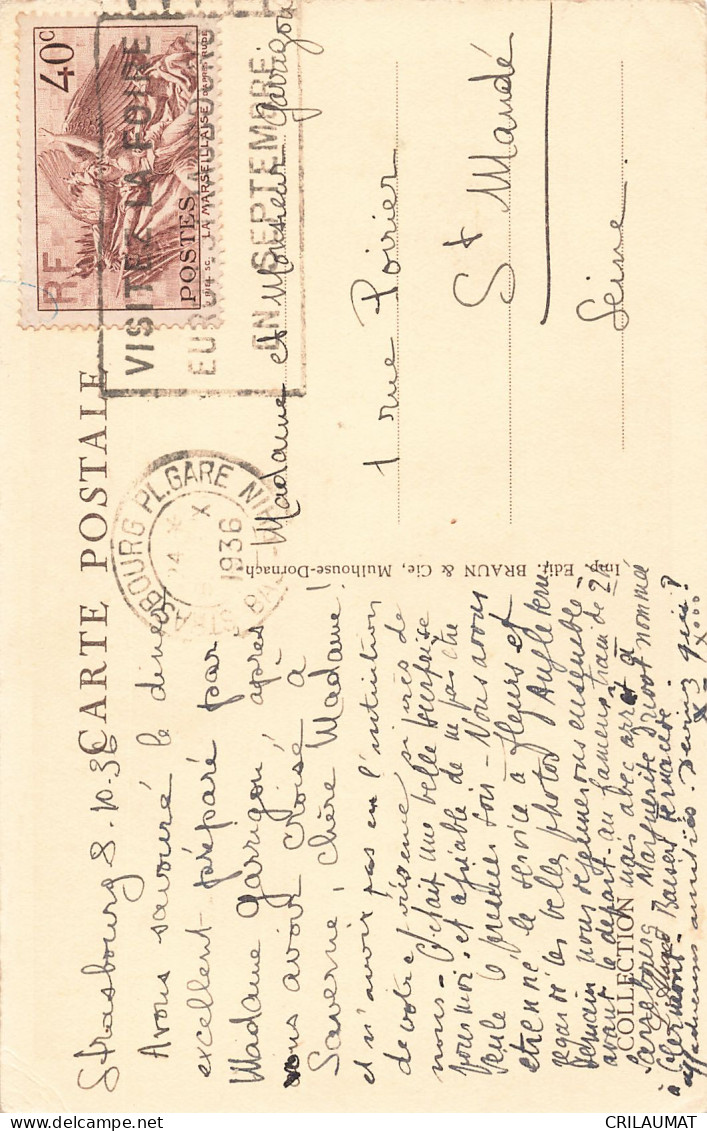 CARTE POSTALE
RF
40c
POSTES
LA MARSEILLAISE D'APRÈS RUDE
VISITEZ LA FOIRE
EN SEPTEMBRE
STRASBOURG PL.GARE
X
1936
Madame et Monsieur Garrigou
1 rue Poirier
St Mandé
Seine
Imp. Edit. BRAUN & Cie, Mulhouse-Dornach
COLLECTION
Strasbourg 8.10.36
Avons savouré le diner
excellent préparé par
Madame Garrigou, après
vous avoir croisé à
Saverne, chère Madame!
et n'avoir pas eu l'intuition
de votre présence si près de
nous - C'était une belle surprise
pour moi, et agréable de ne pas être
seule le premier soir - Nous avons
étrenné le service à fleurs et
regardé les belles photos d'Angleterre
Demain nous déjeunerons ensemble
avant le départ au fameux train de 2h
mais avec arrêt à
Sarrebourg Marguerite nommée
à Clermont - Baisers Fernande.
affectueuses amitiés. Devinez qui?
X - Xooo
CRILAUMAT